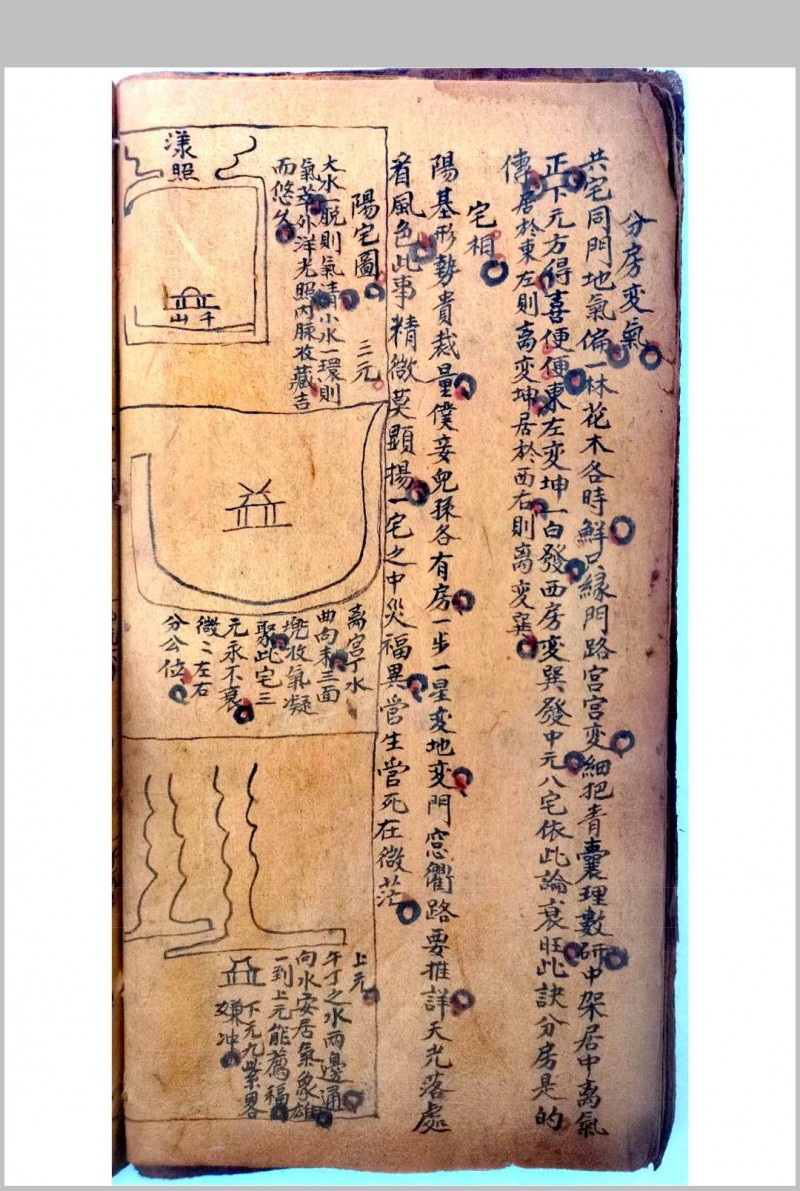 分房变氣
共宅同門地氣偏一林花木各時鮮只緣門路宮宮变細把青囊理數研中架居中离氣
正下元方得喜便便東左变坤一白發西房变巽發中元八宅依此論衰旺此訣分房是的
傳居於東左則离变坤居於西右則离变巽
宅相
陽基形勢貴裁量僕妾兒孫各有房一步一星变地变門窓衢路要推詳天光落處
看風色此事精微莫顯揚一宅之中災福異當生當死在微茫
陽宅圖 三元
大水一脱則氣清小水一環則
氣萃外洋光照内脉收藏吉
而悠久
漾照
千山
离宮丁水
曲向来三面
兜收氣凝
聚此宅三
元永不衰
微〻左右
分公位
上元
午丁之水两邊通
向水安居氣象雄
一到上元能薦福
下元九紫畧
嫌冲